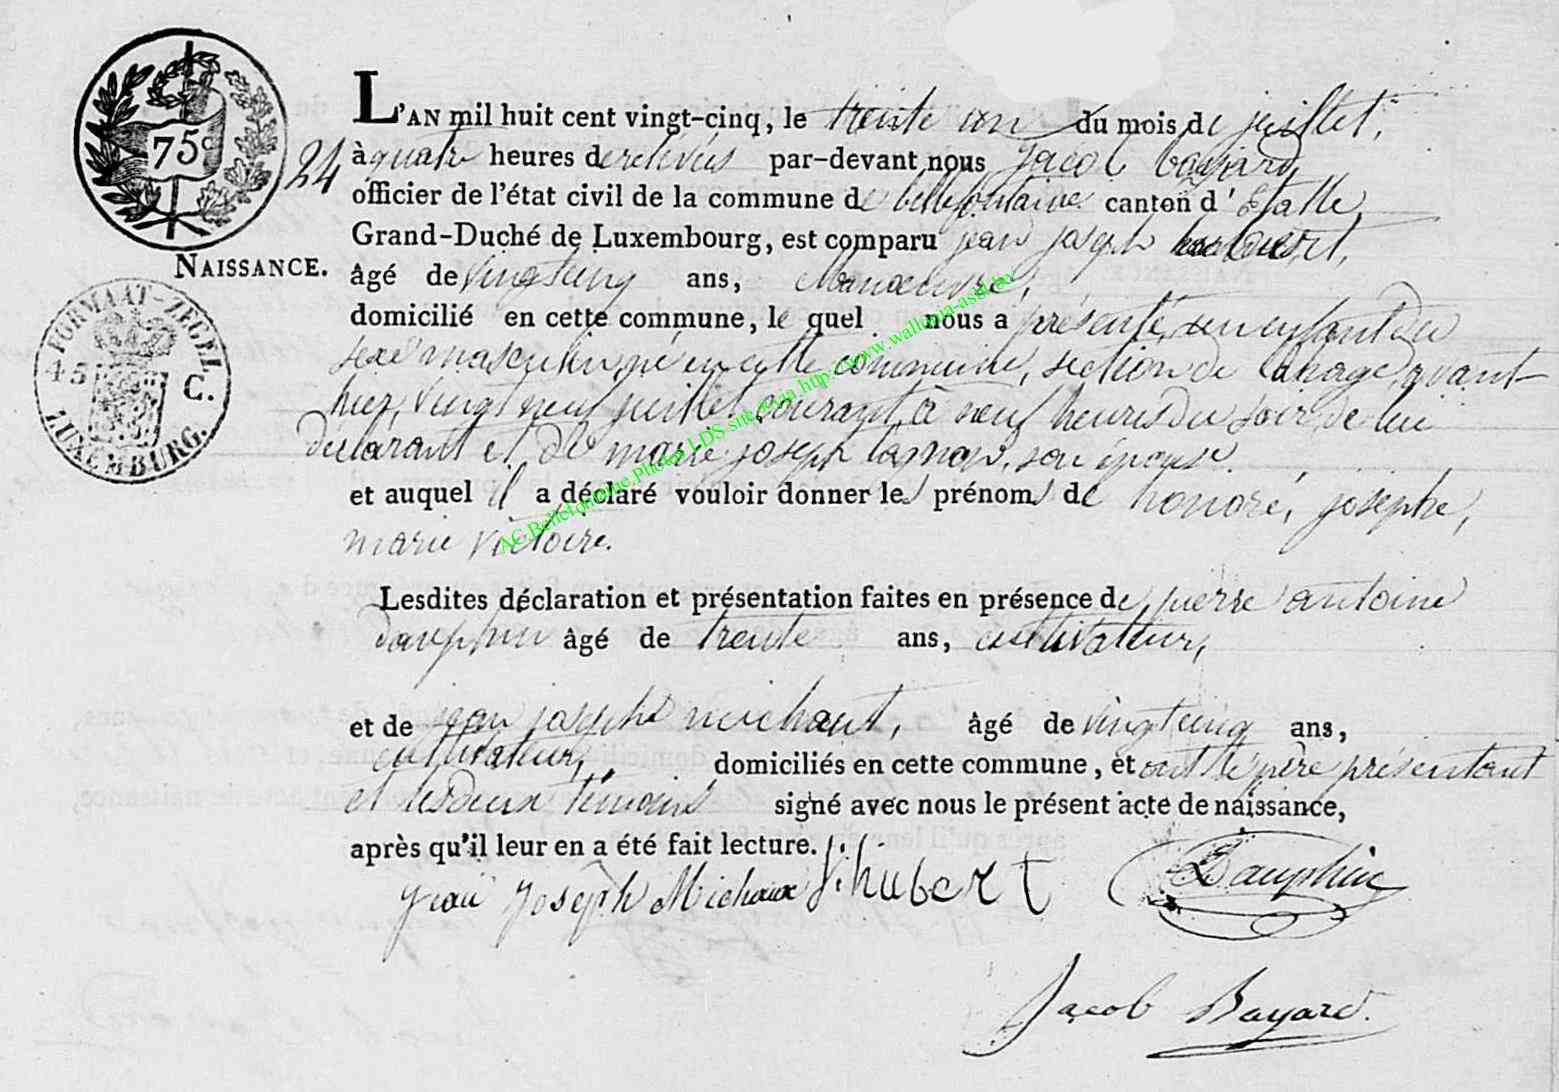 75c
24
NAISSANCE.
FORMAAT-ZEGEL
45 C.
LUXEMBURG.
L'AN mil huit cent vingt-cinq, le trente un du mois de juillet,
à quatre heures de relevées par-devant nous Jacob bayard,
officier de l'état civil de la commune de bellefontaine canton d'Etalle,
Grand-Duché de Luxembourg, est comparu jean joseph hubert,
âgé de vingt cinq ans, Manoeuvre,
domicilié en cette commune, le quel nous a présenté un enfant du
sexe masculin né en cette commune, section de lahage, avant
hier, vingt neuf juillet courant, à neuf heures du soir, de lui
déclarant et de marie joseph son épouse.
et auquel il a déclaré vouloir donner les prénoms de honoré, josephe,
marie victoire.
Lesdites déclaration et présentation faites en présence de pierre antoine
dauphin âgé de trente ans, cultivateur,
et de jean josephe michaut, âgé de vingt cinq ans,
cultivateur, domiciliés en cette commune, et ont le père présentant
et les deux témoins signé avec nous le présent acte de naissance,
après qu'il leur en a été fait lecture.
Jean Joseph Michaux hubert Dauphin
Jacob Bayard.
AC.Bellefontaine.Photos LDS site asgn.http://www.wallonia-asbl.be/